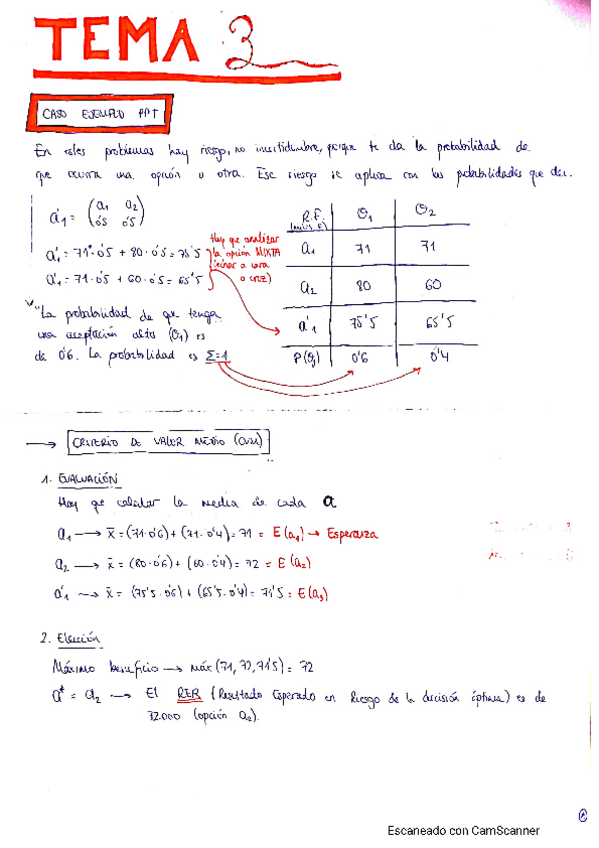 TEMA 3
CASO EJEMPLO PPT
En estes problemas hay riesgo, no incertidumbre, porque te da la probabilidad de
que ocurra una opción o otra. Ese riesgo se aplica con las probabilidades que dan.
a'1 = (a1 a2
0'5 0'5)
a'1 = 71·0'5 + 80·0'5 = 75'5
a'1 = 71·0'5 + 60·0'5 = 65'5
Hay que analizar
la opción MIXTA
(echar a cara
o cruz)
"La probabilidad de que tenga
una aceptación alta (θ1) es
de 0'6. La probabilidad es Σ=1
R.F. θ1 θ2
a1 71 71
a2 80 60
a'1 75'5 65'5
P(θj) 0'6 0'4
→ CRITERIO DE VALOR MEDIO (CVM)
1. EVALUACIÓN
Hay que calcular la media de cada a
a1 → x̄ = (71·0'6) + (71·0'4) = 71 = E(a1) → Esperanza
a2 → x̄ = (80·0'6) + (60·0'4) = 72 = E(a2)
a'1 → x̄ = (75'5·0'6) + (65'5·0'4) = 71'5 = E(a3)
2. Elección
Máximo beneficio → máx (71, 72, 71'5) = 72
a* = a2 → El RER (Resultado Esperado en Riesgo de la decisión óptima) es de
72.000 (opción a2).
Escaneado con CamScanner